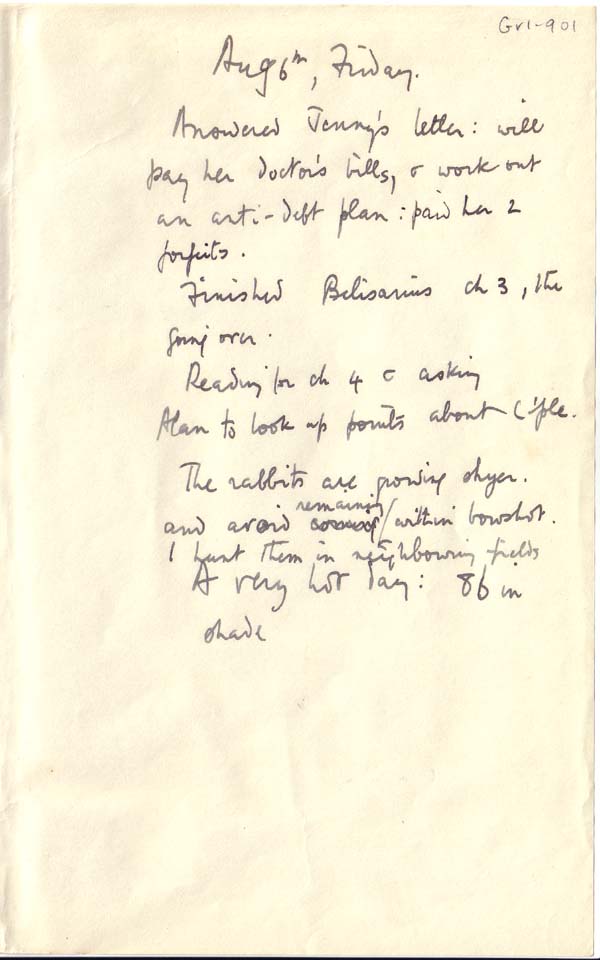 Gv1-901
Aug 6th, Friday.
Answered Jenny's letter: will
pay her doctor's bills, & work out
an anti-debt plan: paid her 2
forfeits.
Finished Belisarius ch 3, the
going over.
Reading for ch 4 & asking
Alan to look up points about C'ple.
The rabbits are growing shyer.
remaining
and avoid / within bowshot.
I hunt them in neighbouring fields
A very hot day: 86 in
shade